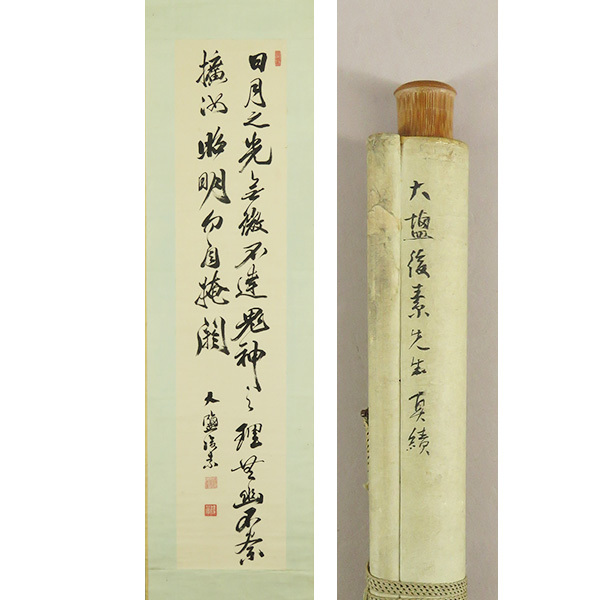 日月之光無微不達鬼神之理無幽不察
擴汝昭明勿自掩闕
大鹽後素
大鹽後素先生真績